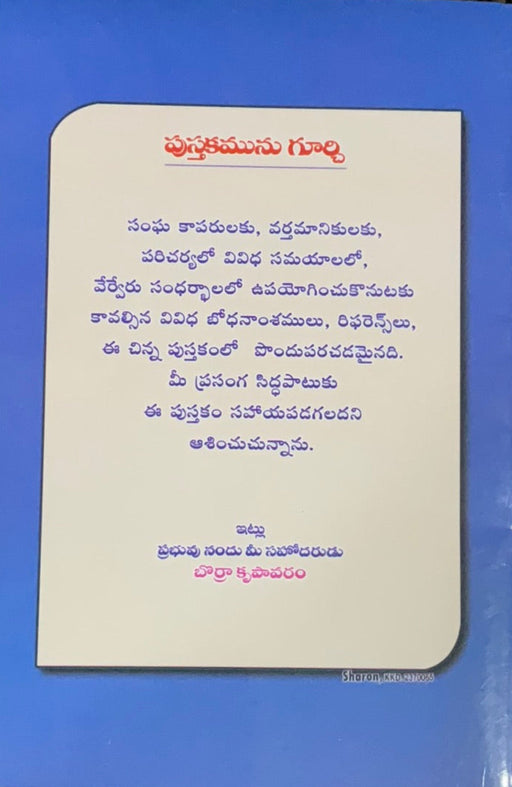 పుస్తకమును గూర్చి
సంఘ కాపరులకు, వర్తమానికులకు,
పరిచర్యలో వివిధ సమయాలలో,
వేర్వేరు సంధర్భాలలో ఉపయోగించుకొనుటకు
కావల్సిన వివిధ బోధనాంశములు, రిఫరెన్స్‌లు,
ఈ చిన్న పుస్తకంలో పొందుపరచడమైనది.
మీ ప్రసంగ సిద్ధపాటుకు
ఈ పుస్తకం సహాయపడగలదని
ఆశించుచున్నాను.
ఇట్లు
ప్రభువు నందు మీ సహోదరుడు
బొర్రా కృపావరం
Sharon, KKD-2370065